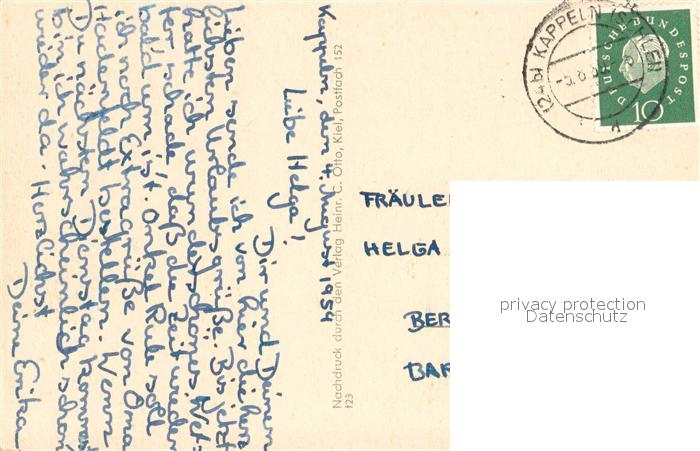 Kappeln, den 4. August 1959
Liebe Helga!
Dir und Deinen
lieben sende ich von hier die herz-
lichsten Urlaubsgrüße. Bis jetzt
hatte ich wunderschönes Wet-
ter schade, daß die Zeit wieder
bald um ist. Onkel Rule soll
ich noch Extragrüße von Oma
Hadenfeldt bestellen. Wenn
Du nächsten Dienstag kommst
bin ich wahrscheinlich schon
wieder da. Herzlichst
Deine Erika
Nachdruck durch den Verlag Heinr. C. Otto, Kiel, Postfach 152
123
(24b) KAPPELN
DEUTSCHE BUNDESPOST
10
FRÄULE
HELGA
BER
BAR
privacy protection
Datenschutz